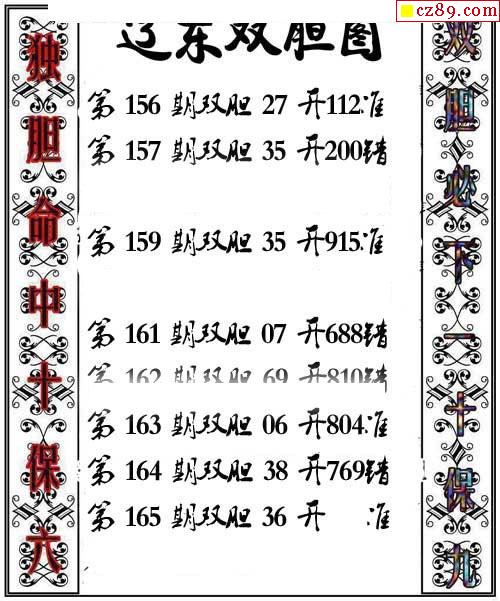 cz89.com
辽东双胆图
独胆命中十保六
第 156 期双胆 27 开112准
第 157 期双胆 35 开200错
第 159 期双胆 35 开915准
第 161 期双胆 07 开688错
第 162 期双胆 69 开810错
第 163 期双胆 06 开804准
第 164 期双胆 38 开769错
第 165 期双胆 36 开 准
双胆必下一十保九